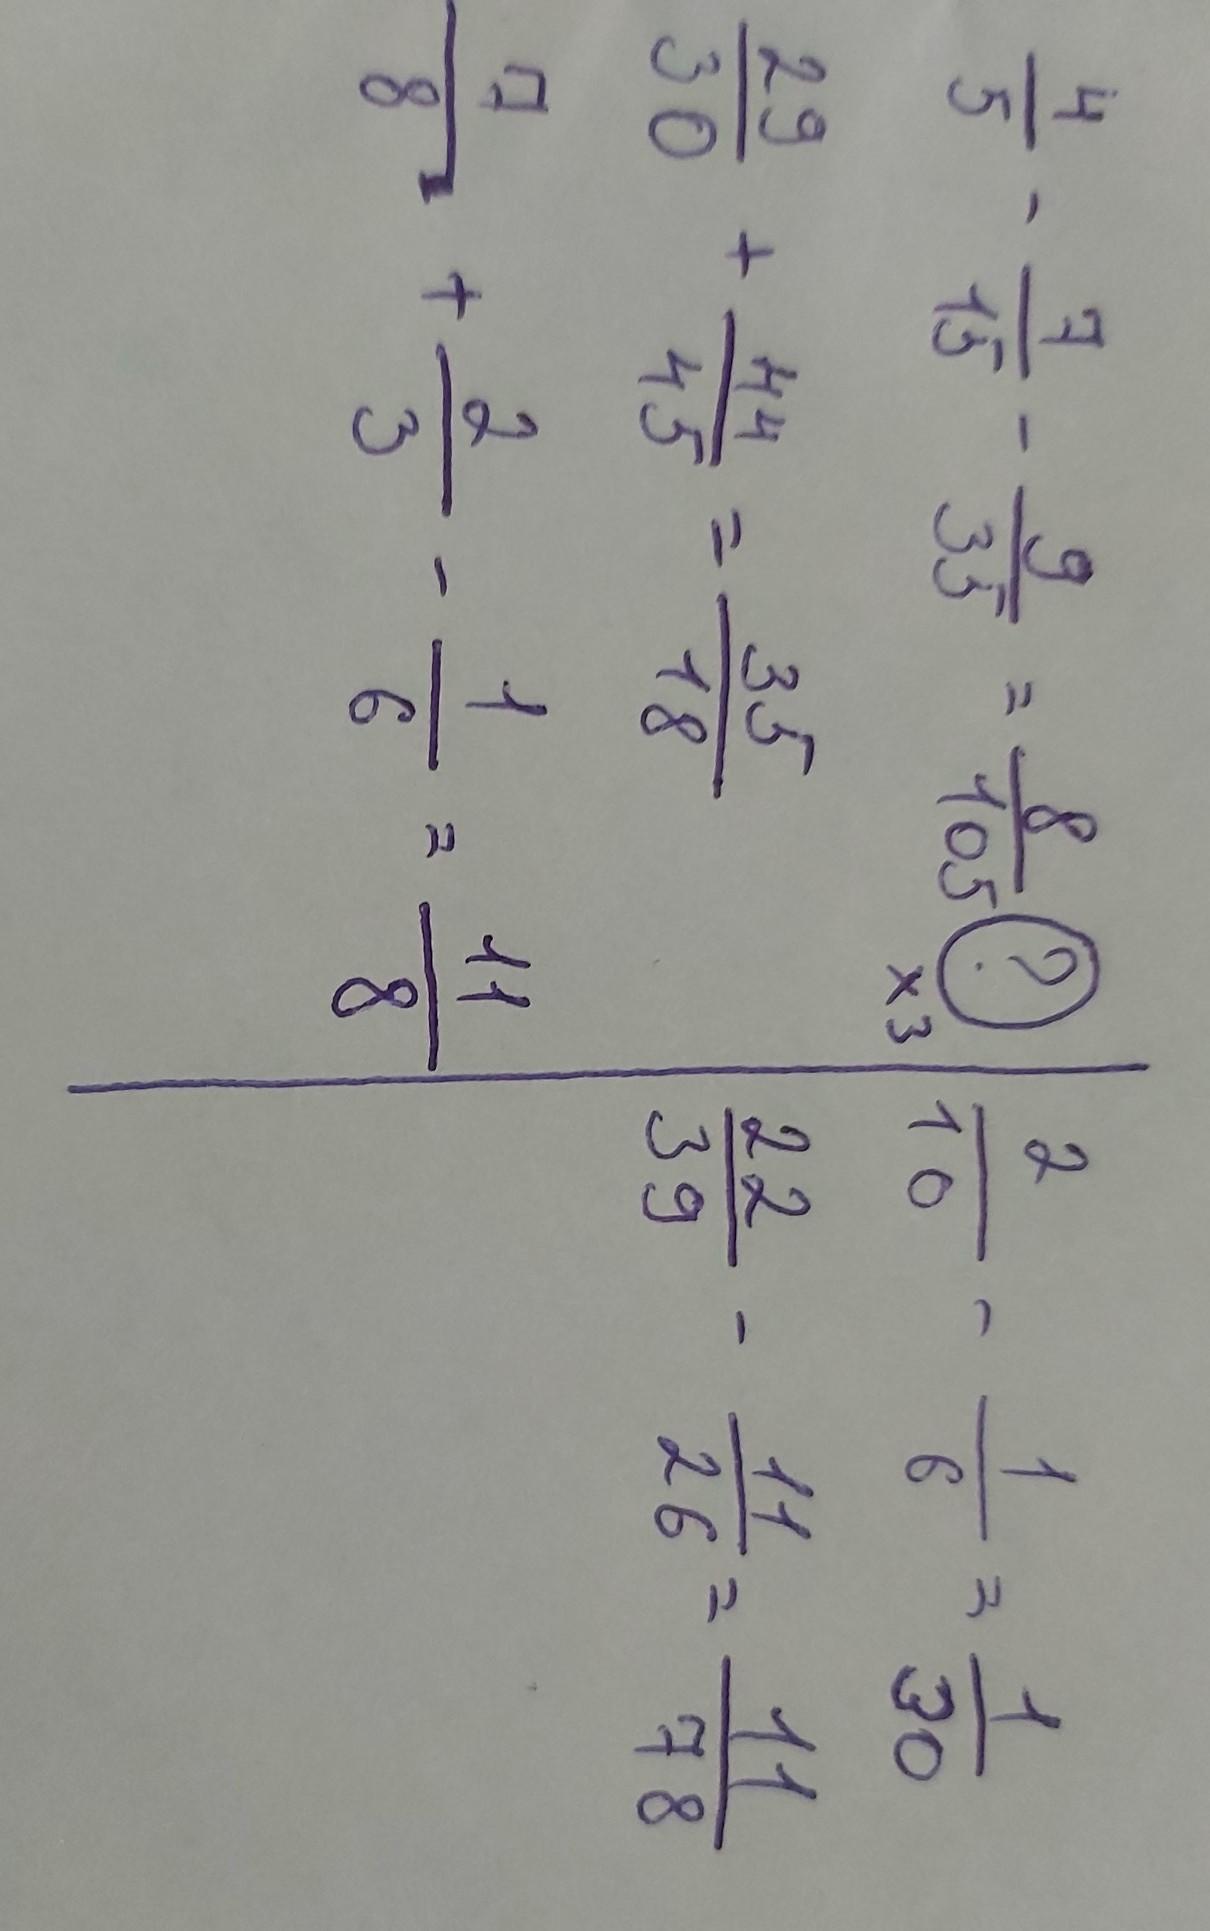 4/5 - 7/15 - 9/35 = 8/105 ?
×3
29/30 + 44/45 = 35/18
7/8 + 2/3 - 1/6 = 11/8
2/10 - 1/6 = 1/30
22/39 - 11/26 = 11/78